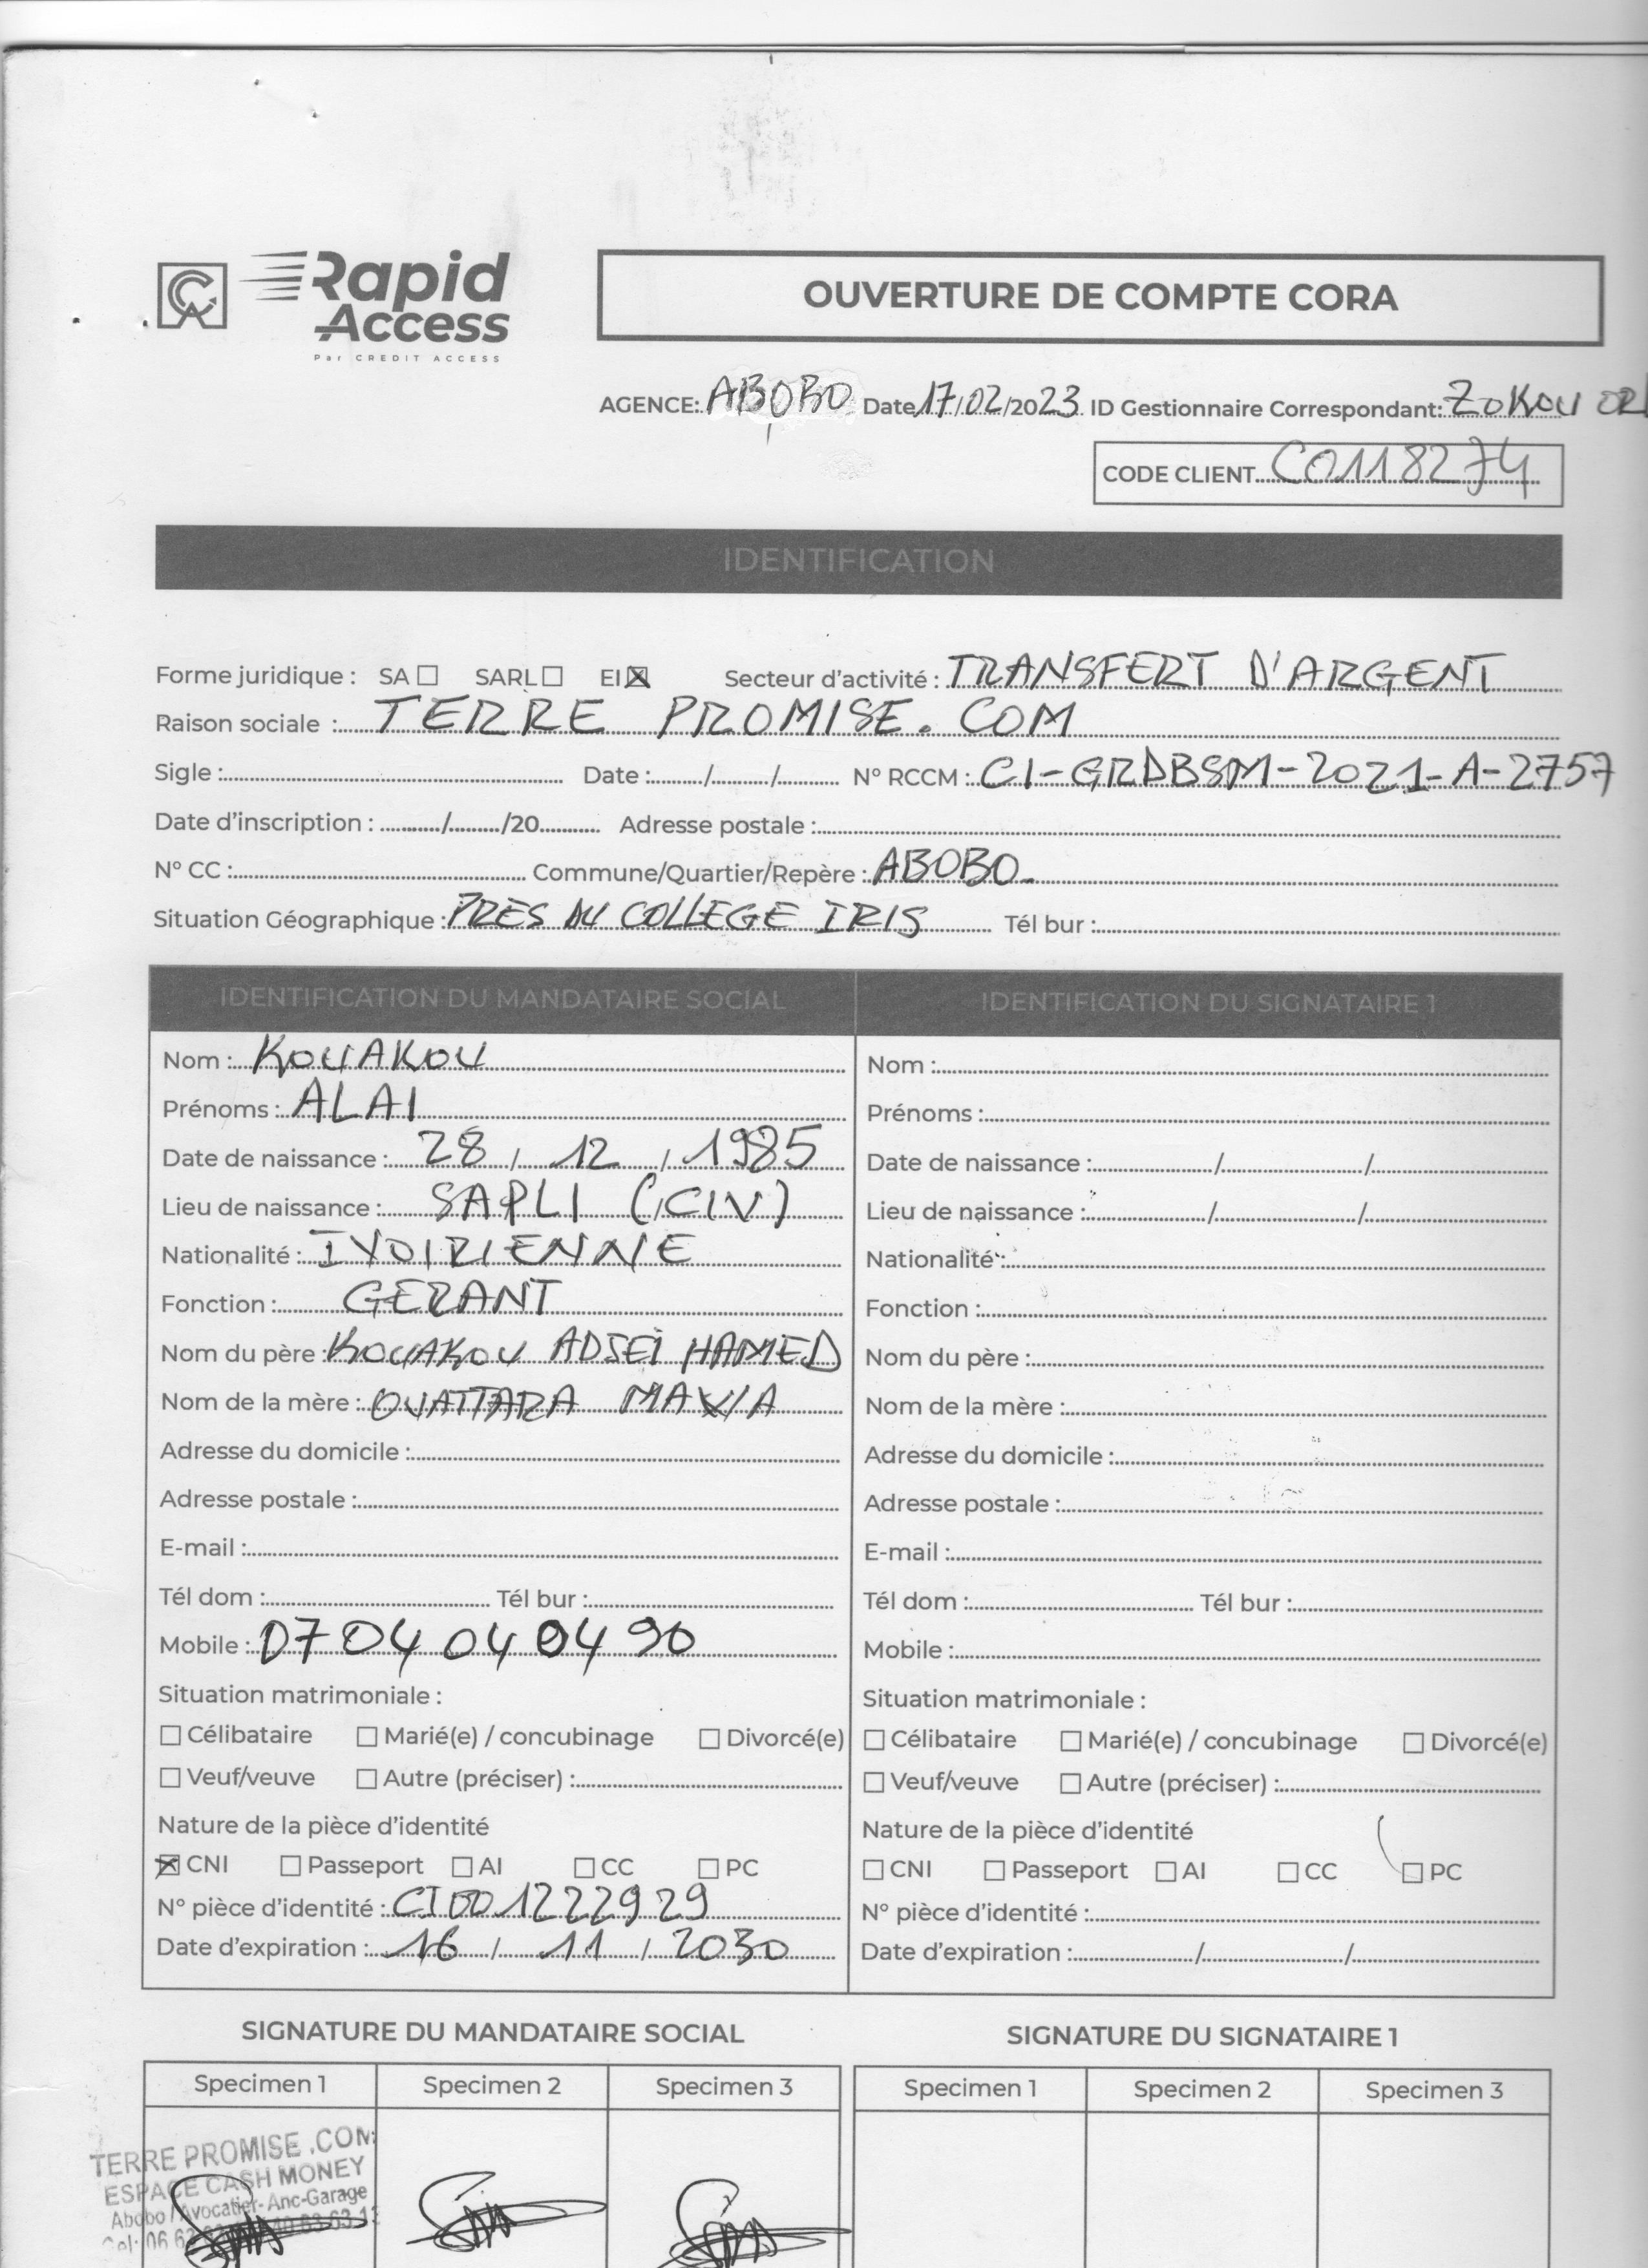 Rapid
Access
Par CREDIT ACCESS
OUVERTURE DE COMPTE CORA
AGENCE: ABOBO Date 17/02/2023 ID Gestionnaire Correspondant: ZOKOU
CODE CLIENT C0118274
IDENTIFICATION
Forme juridique : SA ☐ SARL ☐ EI ☒ Secteur d'activité : TRANSFERT D'ARGENT
Raison sociale : TERRE PROMISE.COM
Sigle : Date : / / N° RCCM : CI-GRDBSM-2021-A-2757
Date d'inscription : / /20 Adresse postale :
N° CC : Commune/Quartier/Repère : ABOBO
Situation Géographique : PRES DU COLLEGE IRIS Tél bur :
IDENTIFICATION DU MANDATAIRE SOCIAL
Nom : KOUAKOU
Prénoms : ALAI
Date de naissance : 28 / 12 / 1985
Lieu de naissance : SAPLI (CIV)
Nationalité : IVOIRIENNE
Fonction : GERANT
Nom du père : KOUAKOU ADJEI HAMED
Nom de la mère : OUATTARA
Adresse du domicile :
Adresse postale :
E-mail :
Tél dom : Tél bur :
Mobile : 07 04 04 04 90
Situation matrimoniale :
☐ Célibataire ☐ Marié(e) / concubinage ☐ Divorcé(e)
☐ Veuf/veuve ☐ Autre (préciser) :
Nature de la pièce d'identité
☒ CNI ☐ Passeport ☐ AI ☐ CC ☐ PC
N° pièce d'identité : CI001222929
Date d'expiration : 16 / 11 / 2030
IDENTIFICATION DU SIGNATAIRE 1
Nom :
Prénoms :
Date de naissance : / /
Lieu de naissance : / /
Nationalité :
Fonction :
Nom du père :
Nom de la mère :
Adresse du domicile :
Adresse postale :
E-mail :
Tél dom : Tél bur :
Mobile :
Situation matrimoniale :
☐ Célibataire ☐ Marié(e) / concubinage ☐ Divorcé(e)
☐ Veuf/veuve ☐ Autre (préciser) :
Nature de la pièce d'identité
☐ CNI ☐ Passeport ☐ AI ☐ CC ☐ PC
N° pièce d'identité :
Date d'expiration : / /
SIGNATURE DU MANDATAIRE SOCIAL
Specimen 1 Specimen 2 Specimen 3
TERRE PROMISE .COM
ESPACE CASH MONEY
Abobo / Avocatier- Anc-Garage
Cel: 06 63
SIGNATURE DU SIGNATAIRE 1
Specimen 1 Specimen 2 Specimen 3